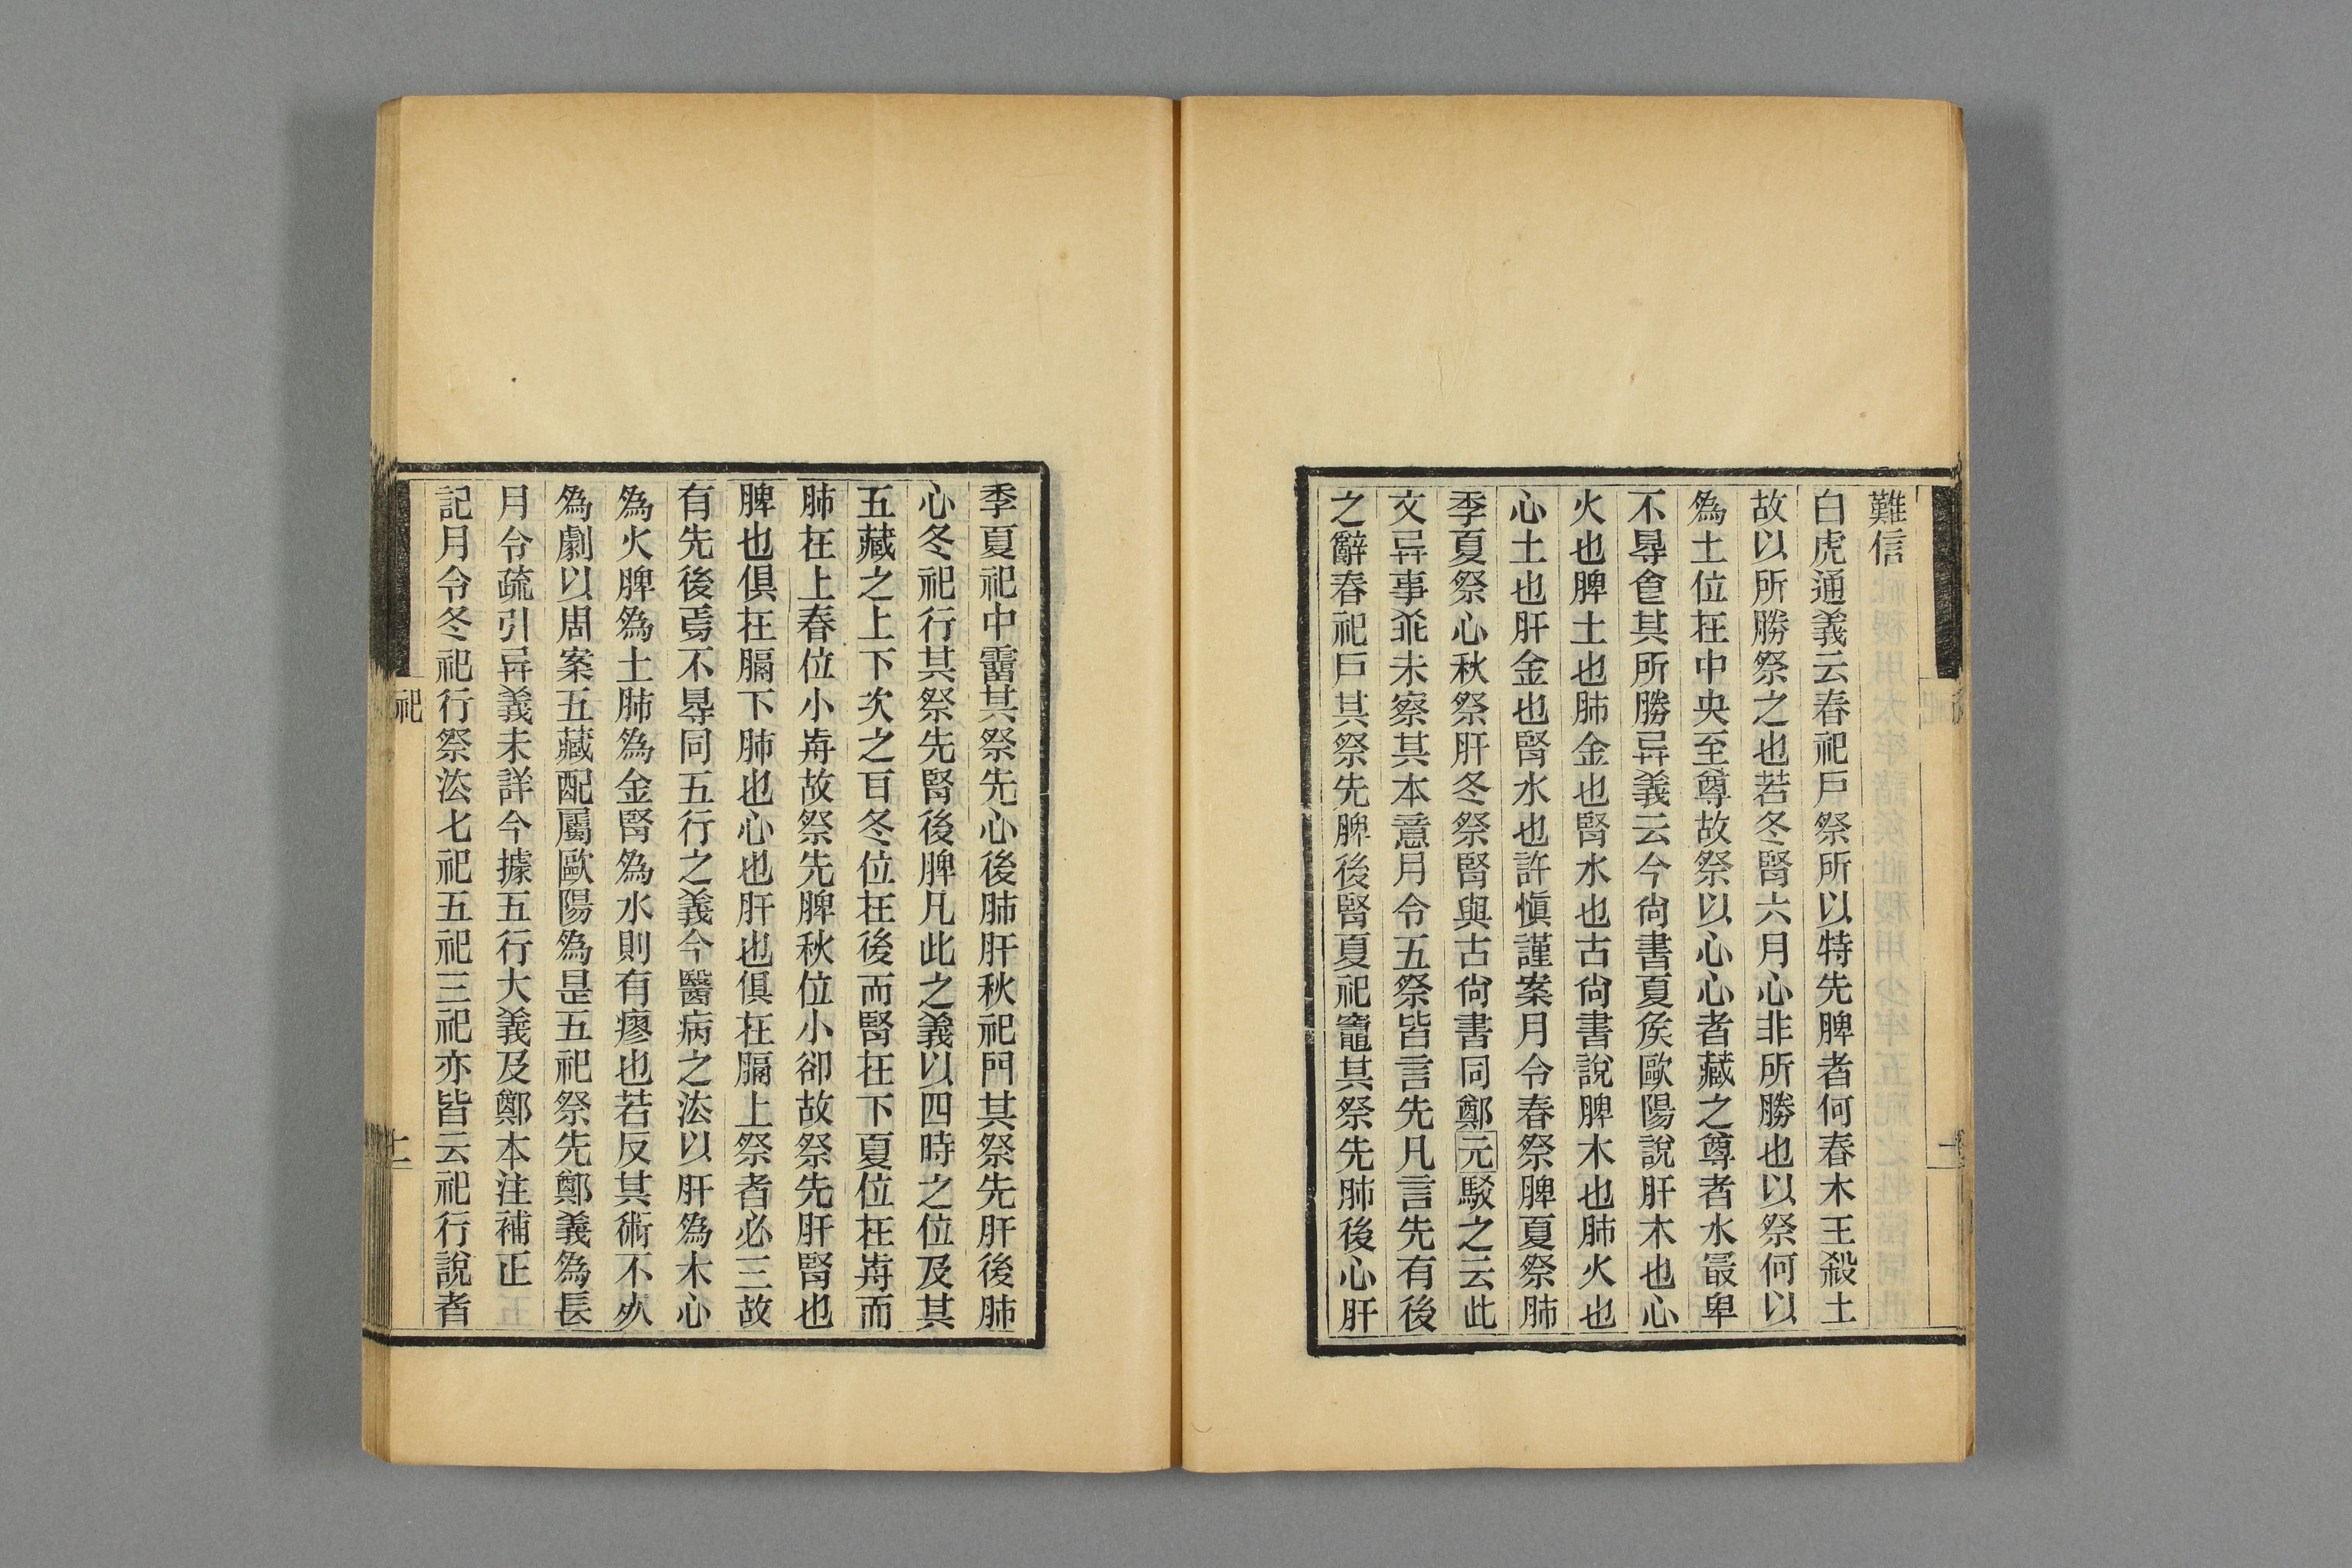 難信
白虎通義云春祀戶祭所以特先脾者何春木王殺土
故以所勝祭之也若冬腎六月心非所勝也以祭何以
爲土位在中央至尊故祭以心心者藏之尊者水最卑
不㝵食其所勝异義云今尙書夏矦歐陽說肝木也心
火也脾土也肺金也腎水也古尙書說脾木也肺火也
心土也肝金也腎水也許愼謹案月令春祭脾夏祭肺
季夏祭心秋祭肝冬祭腎與古尙書同鄭元駁之云此
文异事乖未察其本意月令五祭皆言先凡言先有後
之辭春祀戶其祭先脾後腎夏祀竈其祭先肺後心肝
季夏祀中霤其祭先心後肺肝秋祀門其祭先肝後肺
心冬祀行其祭先腎後脾凡此之義以四時之位及其
五藏之上下次之百冬位在後而腎在下夏位在歬而
肺在上春位小歬故祭先脾秋位小卻故祭先肝腎也
脾也俱在膈下肺也心也肝也俱在膈上祭者必三故
有先後焉不㝵同五行之義今醫病之法以肝爲木心
爲火脾爲土肺爲金腎爲水則有瘳也若反其術不㱙
爲劇以周案五藏配屬歐陽爲是五祀祭先鄭義爲長
月令疏引异義未詳今據五行大義及鄭本注補正
記月令冬祀行祭法七祀五祀三祀亦皆云祀行說者
祀